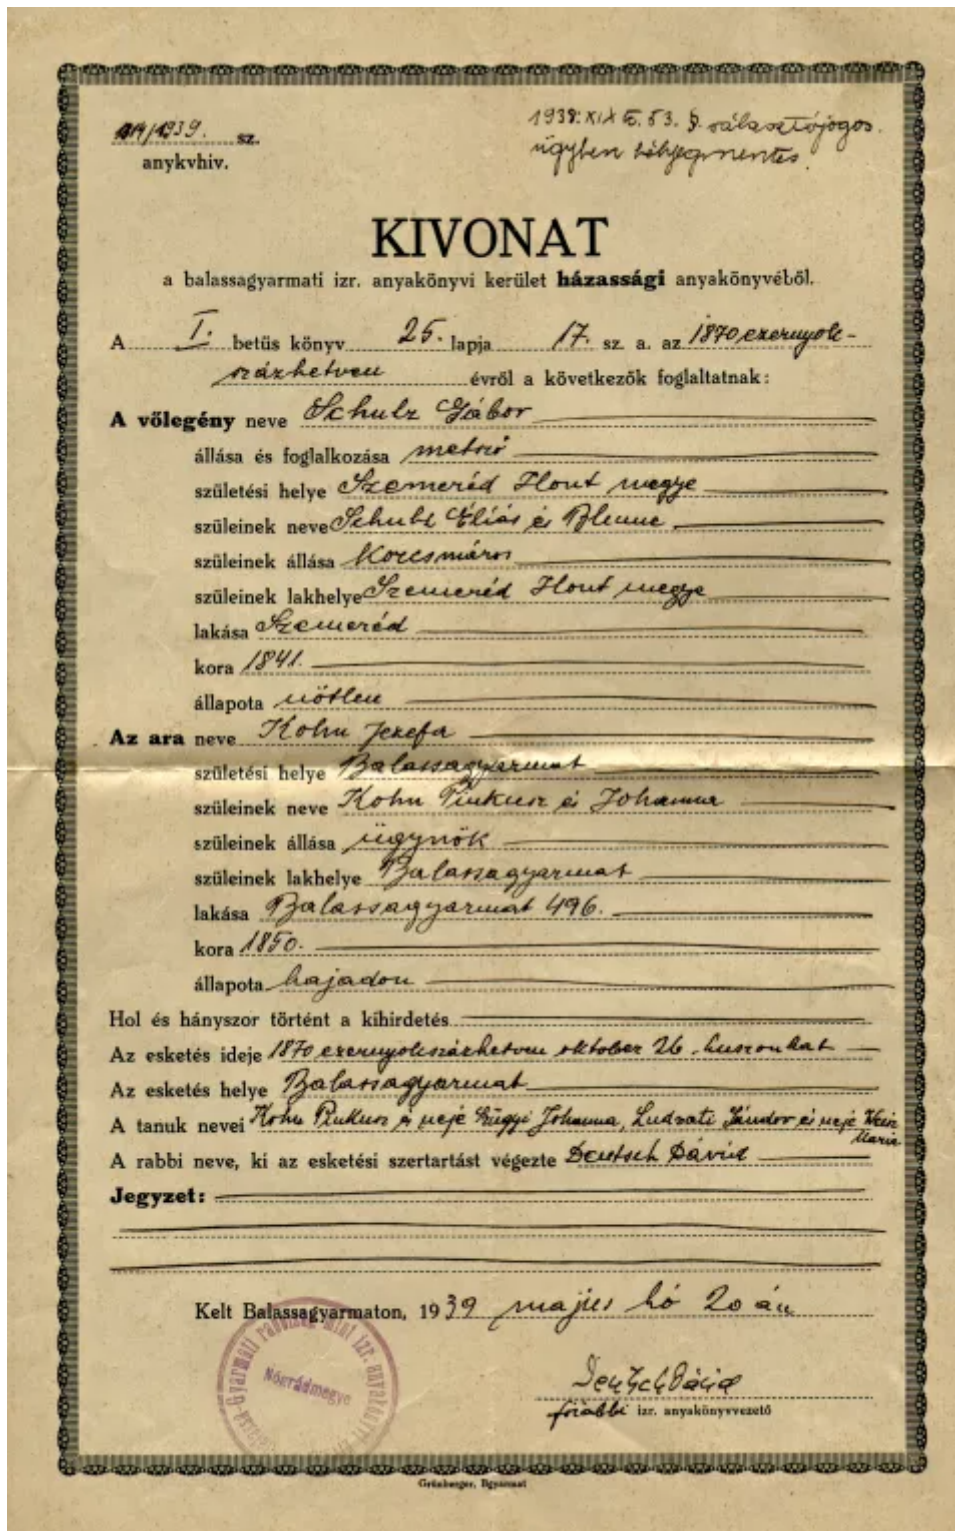 /1939. sz.
anykvhiv.
1938: XIX tc. 53. § választójogos
ügyben bélyegmentes.
KIVONAT
a balassagyarmati izr. anyakönyvi kerület házassági anyakönyvéből.
A I. betűs könyv 25. lapja 17. sz. a. az 1870 ezernyolc-
százhetven évről a következők foglaltatnak:
A vőlegény neve Schulz Gábor
állása és foglalkozása metsző
születési helye Szemeréd Hont megye
szüleinek neve Schulz Éliás és Blume
szüleinek állása Korcsmáros
szüleinek lakhelye Szemeréd Hont megye
lakása Szemeréd
kora 1841.
állapota nőtlen
Az ara neve Kohn Jozefa
születési helye Balassagyarmat
szüleinek neve Kohn Pinkusz és Johanna
szüleinek állása ügynök
szüleinek lakhelye Balassagyarmat
lakása Balassagyarmat 496.
kora 1850.
állapota hajadon
Hol és hányszor történt a kihirdetés
Az esketés ideje 1870 ezernyolcszázhetven oktober 26. huszonhat
Az esketés helye Balassagyarmat
A tanuk nevei Kohn Pinkusz és nejé Johanna, Ludvati Sándor és nejé Weisz
Maria
A rabbi neve, ki az esketési szertartást végezte Deutsch Dávid
Jegyzet:
Kelt Balassagyarmaton, 1939 majus hó 20 án
Nógrádmegye
Deutsch Dávid
főrabbi izr. anyakönyvvezető
Grünberger, Bgyarmat